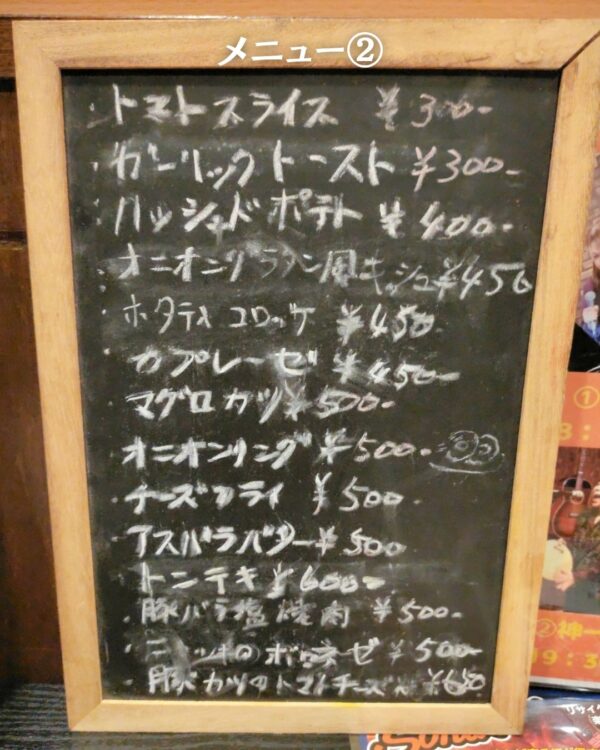 メニュー②
・トマトスライス ¥300-
・ガーリックトースト ¥300-
・ハッシュドポテト ¥400-
・オニオングラタン風キッシュ ¥450
・ホタテコロッケ ¥450
・カプレーゼ ¥450-
・マグロカツ ¥500-
・オニオンリング ¥500-
・チーズフライ ¥500
・アスパラバター ¥500
・トンテキ ¥600-
・豚バラ塩焼肉 ¥500-
¥500-
・豚カツのトマトチーズ ¥650
①
②神一